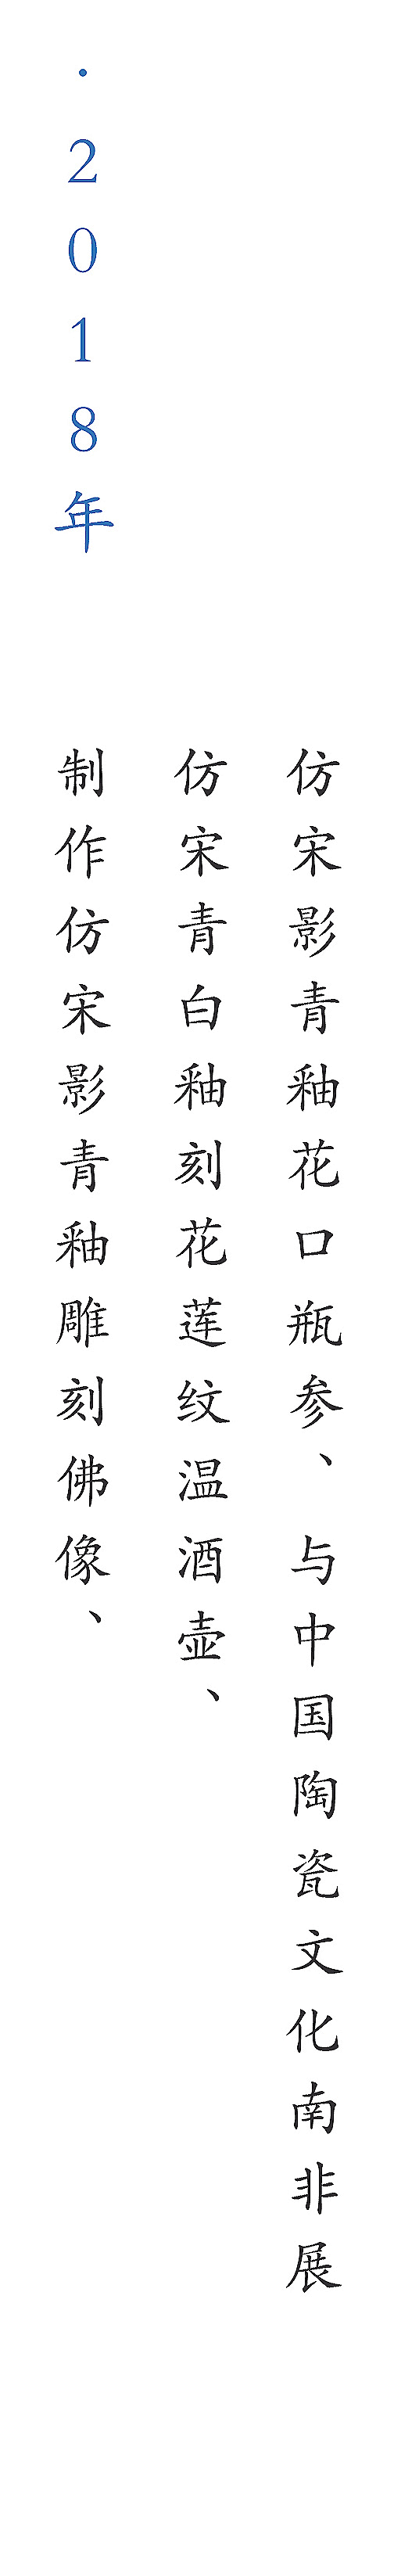 ·2018年
制作仿宋影青釉雕刻佛像、
仿宋青白釉刻花莲纹温酒壶、
仿宋影青釉花口瓶参、与中国陶瓷文化南非展